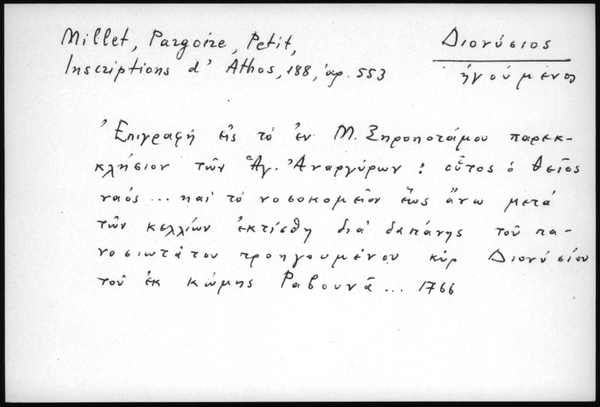 Millet, Pargoire, Petit,
Inscriptions d' Athos, 188, ἀρ. 553
Διονύσιος
ἡγούμενος
Ἐπιγραφή εἰς τό ἐν Μ. Ξηροποτάμου παρεκ-
κλήσιον τῶν Ἁγ. Ἀναργύρων: οὗτος ὁ θεῖος
ναός ... καί τό νοσοκομεῖον ἕως ἄνω μετά
τῶν κελλίων ἐκτίσθη διά δαπάνης τοῦ πα-
νοσιωτάτου προηγουμένου κύρ Διονυσίου
τοῦ ἐκ κώμης Ραβουνᾶ ... 1766